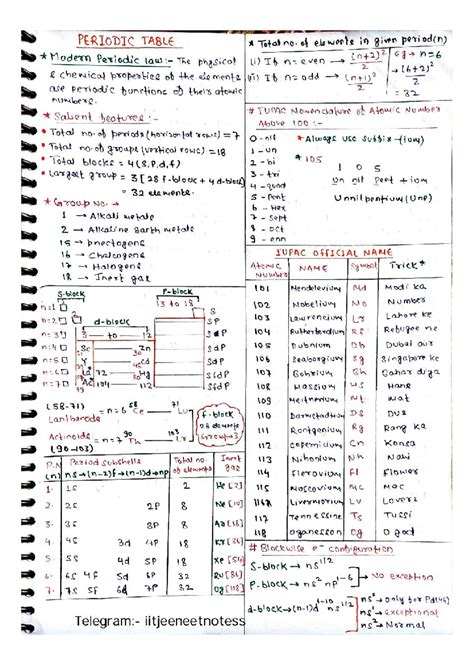 PERIODIC TABLE
* Modern Periodic law:- The physical
& chemical properties of the elements
are periodic functions of their atomic
numbers.
* Salient features :-
* Total no. of periods (horizontal rows) = 7
* Total no. of groups (vertical rows) = 18
* Total blocks = 4 (S, P, d, f)
* Largest group = 3 [28 f-block + 4 d-block]
= 32 elements.
* Group No. →
1 → Alkali metals
2 → Alkaline Earth metals
15 → pnectogens
16 → Chalcogens
17 → Halogens
18 → Inert gas
S-block
P-block
3 to 18
d-block
n=1
n=2
n=3
n=4
n=5
n=6
n=7
3 → to → 12
Sc Zn
Y Cd
La Hg
Ac
S
SP
SP
SdP
SdP
SfdP
SfdP
(58-71)
Lanthanoids
= n=6 58 Ce — Lu 71
Actinoids = n=7 90 Th — Lr 103
(90-103)
f-block
Group=3
P.N (n)
Period subshells
ns→(n-2)f→(n-1)d→np
Total no. of elements
Inert gas
1- 1S 2 He [2]
2- 2S 2P 8 Ne [10]
3- 3S 3P 8 Ar [18]
4- 4S 3d 4P 18 Kr [36]
5- 5S 4d 5P 18 Xe [54]
6- 6S 4f 5d 6P 32 Rn [86]
7- 7S 5f 6d 7P 32 Og [118]
* Total no. of elements in given period(n)
(i) If n = even → (n+2)²/2
(ii) If n = odd → (n+1)²/2
eg → n=6
→ (6+2)²/2
= 32
# IUPAC Nomenclature of Atomic Number
Above 100 :-
0 - nil
1 - un
2 - bi
3 - tri
4 - quad
5 - pent
6 - hex
7 - sept
8 - oct
9 - enn
* Always use suffix -(ium)
* 105
1 0 5
Un nil pent + ium
Unnilpentium (Unp)
IUPAC OFFICIAL NAME
Atomic Number NAME Symbol Trick*
101 Mendelevium Md Modi ka
102 Nobelium No Number
103 Lawrencium Lr Lahore ke
104 Rutherfordium Rf Refugee ne
105 Dubnium Db Dubai aur
106 Seaborgium Sg Singapore ke
107 Bohrium Bh Bahar diya
108 Hassium Hs Hans
109 Meitnerium Mt Wat
110 Darmstadtium Ds Dus
111 Rontgenium Rg Rang ka
112 Copernicium Cn Konsa
113 Nihonium Nh Nahi
114 Flerovium Fl Flower
115 Moscovium Mc Mac
116 Livermorium Lv Lovers
117 Tennessine Ts Tussi
118 Oganesson Og O god
# Blockwise e⁻ configuration
S-block → ns¹¹²
P-block → ns² np¹⁻⁶
→ No exception
d-block → (n-1)d¹⁻¹⁰
ns⁰ → only for Pd(46)
ns¹ → exceptional
ns² → Normal
Telegram:- iitjeeneetnotess